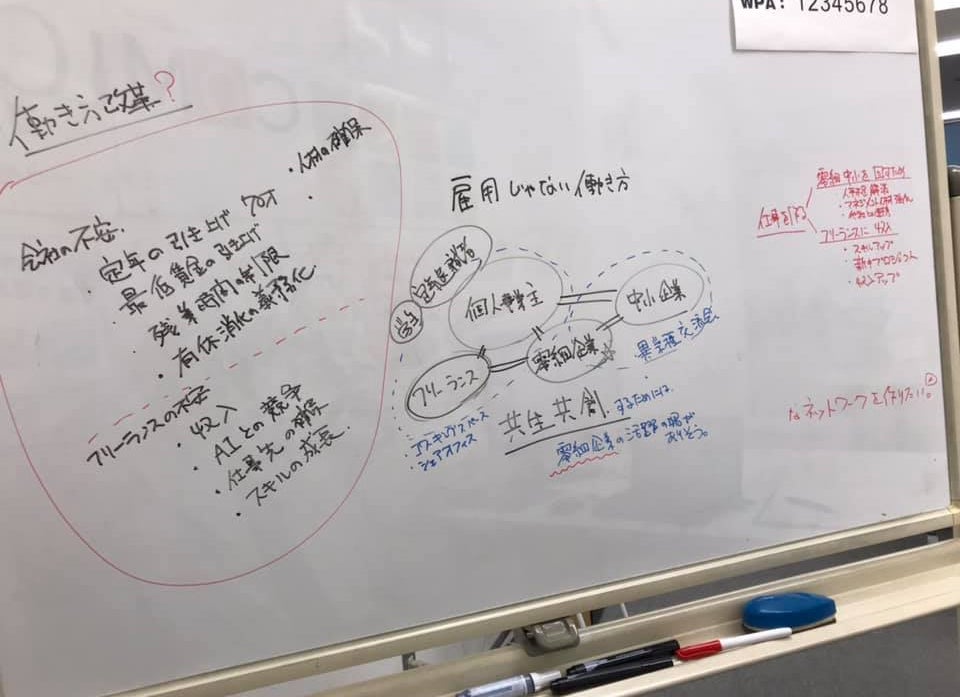 WPA: 12345678
働き方改革?
会社の不安
・定年の引き上げ 70才
・最低賃金の引き上げ
・残業時間の制限
・有休消化の義務化
・人材の確保
フリーランスの不安
・収入
・AIとの競争
・仕事先の確保
・スキルの成長
雇用じゃない働き方
学生
個人事業主
中小企業
零細企業
フリーランス
異業種交流会
・シェアオフィス
共生共創するためには、
零細企業の活躍の場が
ありそう。
仕事を作る
零細中小を回すため
フリーランスに収入
・スキルアップ
・新たなプロジェクト
・収入アップ
なネットワークを作りたい。